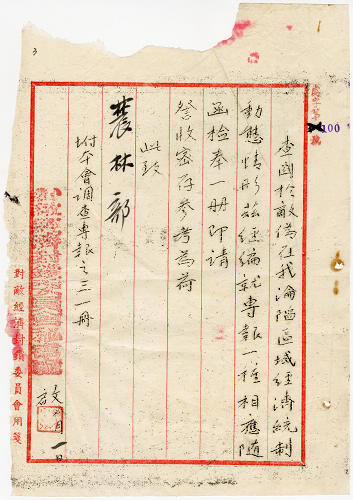 查關於敵偽在我淪陷區域經濟統制
動態情形茲經編就專報一種相應隨
函檢奉一册即請
詧收密存參考為荷
此致
農林部
附本會調查專報之三一册
啟 月一日
對敵經濟封鎖委員會用箋
字第100號
3